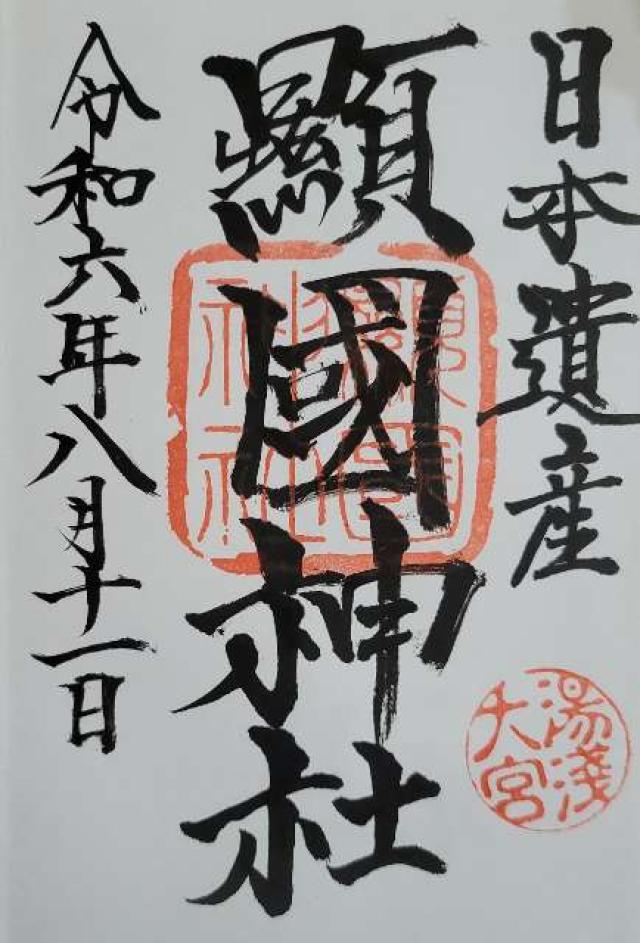 日本遺産
顯國神社
令和六年八月十一日
顯國
神社
湯淺
大宮